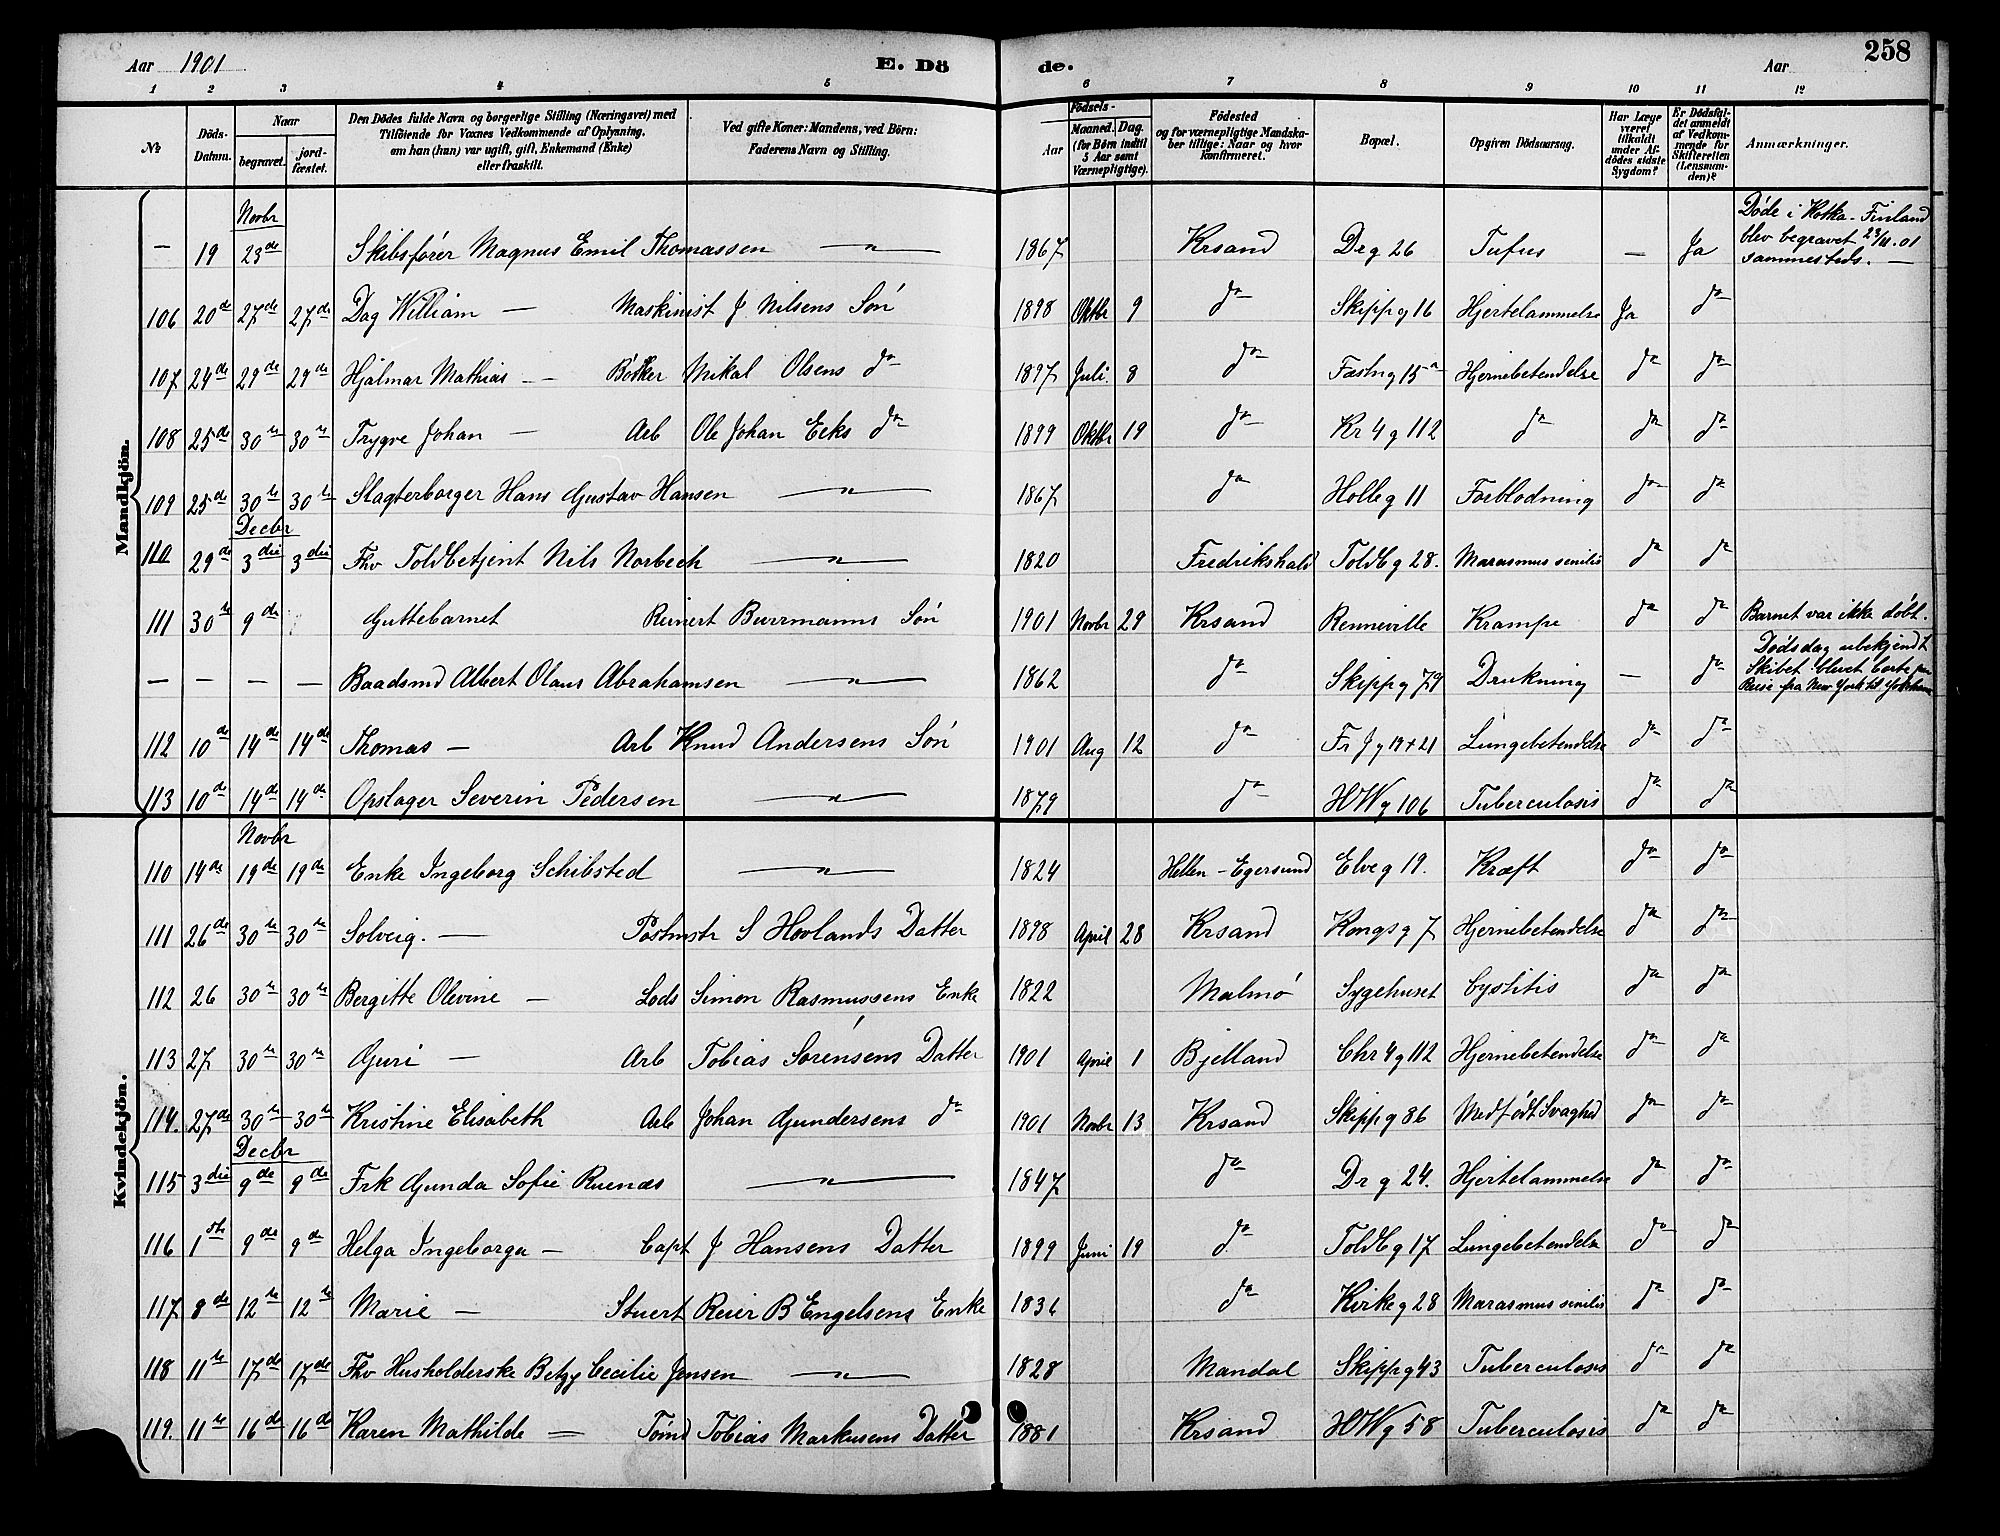 258
Aar 1901 E. Dö de. Aar
1 2 3 4 5 6 7 8 9 10 11 12
№ Döds-Datum. Naar begravet. jord-fæstet. Den Dödes fulde Navn og borgerlige Stilling (Næringsvei) med Tilföiende for Voxnes Vedkommende af Oplysning, om han (hun) var ugift, gift, Enkemand (Enke) eller fraskilt. Ved gifte Koner: Mandens, ved Börn: Faderens Navn og Stilling. Födsels- Aar Maaned. Dag. (for Börn indtil 5 Aar samt Værnepligtige). Födested og for værnepligtige Mandskaber tillige: Naar og hvor konfirmeret. Bopæl. Opgiven Dödsaarsag. Har Læge været tilkaldt under Afdödes sidste Sygdom? Er Dödsfaldet anmeldt af Vedkommende for Skifteretten (Lensmanden)? Anmærkninger.
Mandkjön.
Novbr
— 19 23de Skibsfører Magnus Emil Thomassen —"— 1867 Krsand Dr g 26 Tufus — Ja Døde i Kotka - Finland blev begravet 23/11.01 sammesteds. —
106 20de 27de 27de Dag William — Maskinist J. Nilsens Søn 1898 Oktbr 9 do Skippg 16 Hjertelammelse Ja do
107 24de 29de 29de Hjalmar Mathias — Bødker Mikal Olsens do 1897 Juli 8 do Fæstng 15a Hjernebetendelse do do
108 25de 30te 30te Trygve Johan — Arb Ole Johan Eeks do 1899 Oktbr 19 do Kr 4 g 112 do do do
109 25de 30te 30te Slagterborger Hans Gustav Hansen —"— 1867 do Holbg 11 Forblodning do do
Decbr
110 29de 3die 3die Fhv Toldbetjent Nils Norbech —"— 1820 Fredrikshald Toldbg 28. Marasmus senilis do do
111 30te 9de Guttebarnet Reinert Burrmanns Søn 1901 Novbr 29 Krsand Renneville Krampe do do Barnet var ikke døbt.
— — — — Baadsmd Albert Olaus Abrahamsen —"— 1862 do Skippg 79 Drukning — do Dødsdag ubekjendt Skibet blevet borte paa Reise fra New York til
112 10de 14de 14de Thomas — Arb Knud Andersens Søn 1901 Aug 12 do Fr J g 19+21 Lungebetendelse do do
113 10de 14de 14de Opslager Severin Pedersen —"— 1879 do HWg 106 Tuberculosis do do
Kvindekjön.
Novbr
110 14de 19de 19de Enke Ingeborg Schibsted —"— 1824 Hellen - Egersund Elveg 19. Kræft do do
111 26de 30te 30te Solveig. — Postmstr S Hovlands Datter 1898 April 28 Krsand Kongsg 7 Hjernebetendelse do do
112 26 30te 30te Bergitte Olevine — Lods Simon Rasmussens Enke 1822 Malmø Sygehuset Cystitis do do
113 27 30te 30te Guri — Arb Tobias Sørensens Datter 1901 April 1 Bjelland Chr 4 g 112 Hjernebetendelse do do
114. 27de 30te 30te Kristine Elisabeth Arb Johan Gundersens do 1901 Novbr 13 Krsand Skippg 86 Medfødt Svaghed do do
Decbr
115 3die 9de 9de Frk Gunda Sofie Ruenæs —"— 1847 do Dr g 24. Hjertelammelse do do
116 1ste 9de 9de Helga Ingeborga — Capt J Hansens Datter 1899 Juni 19 do Toldbg 17 Lungebetendelse do do
117 8de 12te 12te Marie — Stuert Reier B Engelsens Enke 1836 do Kirkeg 28 Marasmus senilis do do
118 11te 17de 17de Fhv Husholderske Betzy Cecilie Jensen —"— 1828 Mandal Skippg 43 Tuberculosis do do
119. 11te 16de 16de Karen Mathilde — Tømd Tobias Markusens Datter 1881 Krsand HWg 58 Tuberculosis do do